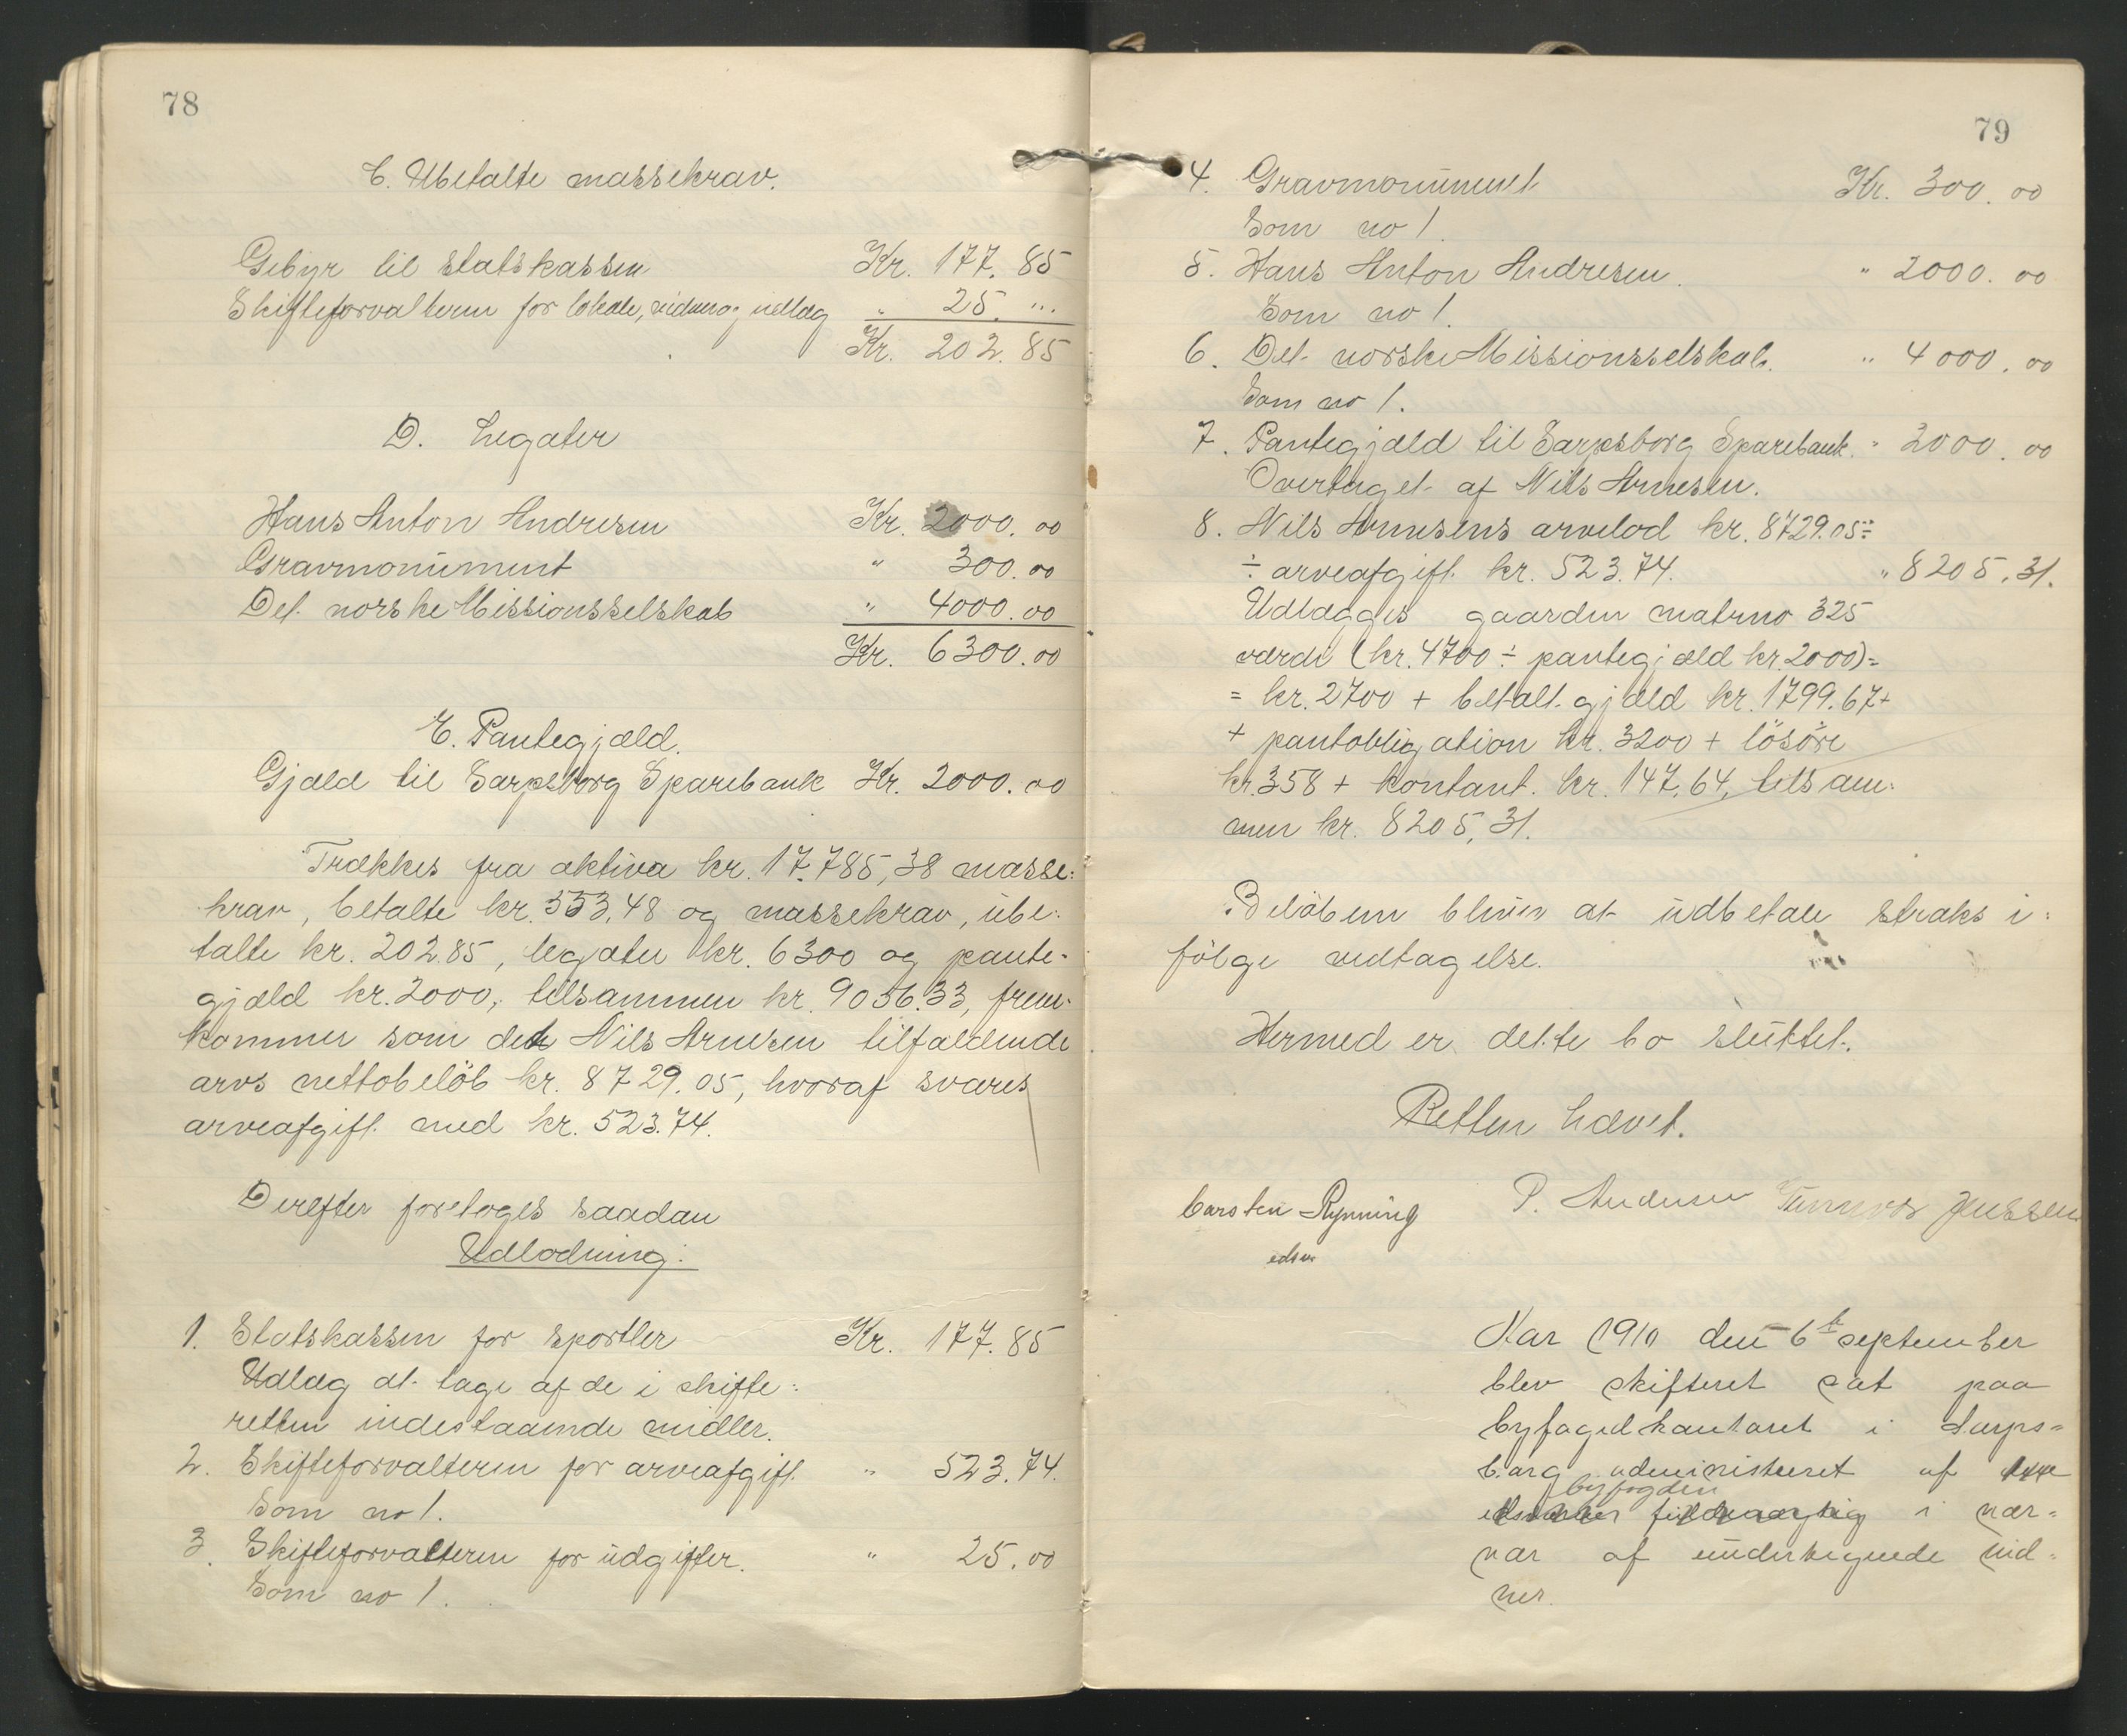 78
C. Ubetalte massekrav.
Gebyr til statskassen Kr. 177. 85
Skifteforvalteren for lokale, vidner og indlæg " 25. "
Kr. 202. 85
D. Legater
Hans Anton Andresen Kr. 2000. 00
Gravmonument " 300. 00
Det norske Missionsselskab " 4000. 00
Kr. 6300. 00
E. Pantegjæld.
Gjæld til Sarpsborg Sparebank Kr. 2000. 00
Trækkes fra aktiva kr. 17.785,38 masse-
krav, betalte kr. 553,48 og massekrav, ube-
talte kr. 202.85, legater kr. 6300 og pante-
gjæld kr. 2000, tilsammen kr. 9056.33, frem-
kommer som det Nils Arnesen tilfaldende
arvs nettobeløb kr. 8729.05, hvoraf svares
arveafgift med kr. 523.74.
Derefter foretoges saadan
Udlodning:
1. Statskassen for sportler Kr. 177. 85
Udlæg at tage af de i skifte-
retten indestaaende midler.
2. Skifteforvalteren for arveafgift " 523. 74.
Som no 1.
3. Skifteforvalteren for udgifter. " 25. 00
Som no 1.
79
4. Gravmonument Kr. 300. 00
Som no 1.
5. Hans Anton Andresen. " 2000. 00
Som no 1.
6. Det norske Missionsselskab. " 4000. 00
Som no 1.
7. Pantegjæld til Sarpsborg Sparebank. " 2000. 00
Overtaget af Nils Arnesen.
8. Nils Arnesens arvelod kr. 8729.05 ÷
÷ arveafgift kr. 523.74. " 8205. 31.
Udlægges gaarden matrno 325
værdi (kr. 4700 ÷ pantegjæld kr. 2000) =
= kr. 2700 + betalt gjæld kr. 1799.67 +
+ pantobligation kr. 3200 + løsøre
kr. 358 + kontant kr. 147,64, tilsam-
men kr. 8205,31.
Beløbene bliver at udbetale straks i-
følge vedtagelse.
Hermed er dette bo sluttet.
Retten hævet.
Carsten Rynning P. Andersen Jenssen
edsv.
Aar 1910 den 6te september
blev skifteret sat paa
byfogedkontoret i Sarps-
borg administreret af
byfogden
i nær-
vær af undertegnede vid-
ner.